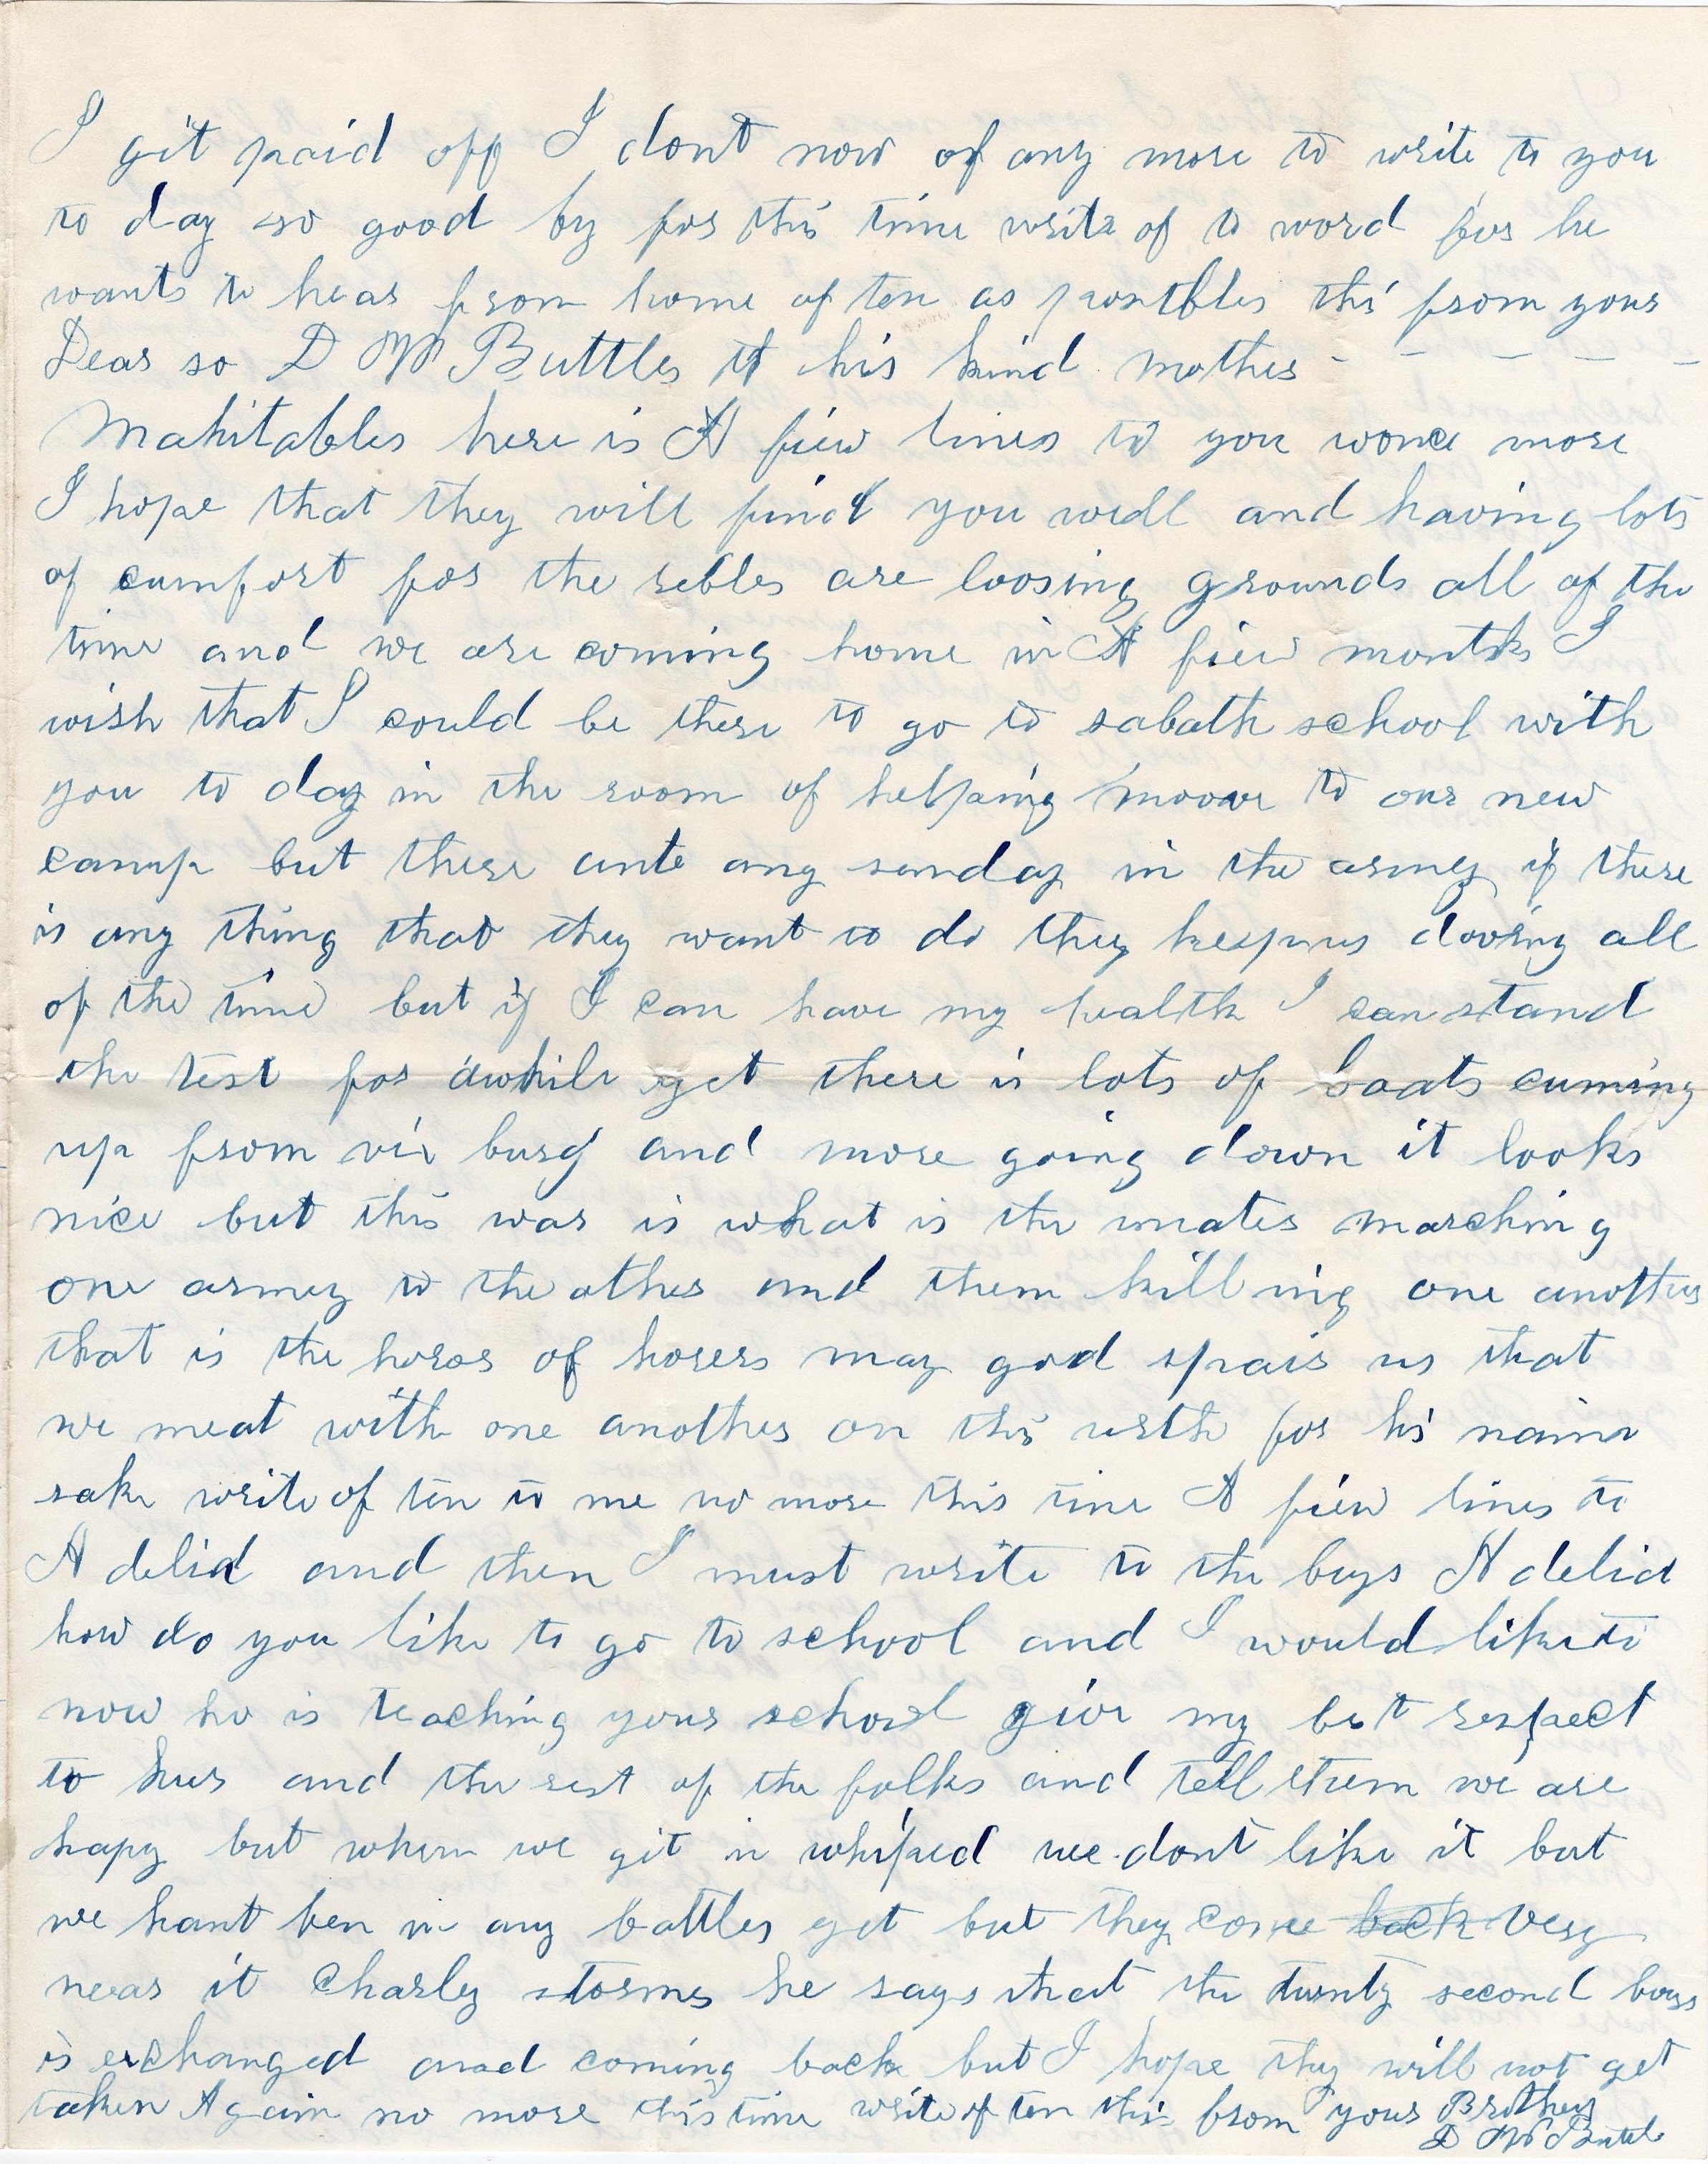 I git paid off I dont now of any more to write to you
to day so good by for this time write of to word for he
wants to hear from home of ten as posibles this from your
Dear so D W Buttles to his kind mother - - - - -
Mahitables here is A fiew lines to you wonce more
I hope that they will find you well and having lots
of cumfort for the rebles are loosing grounds all of the
time and we are coming home in A fiew months I
wish that I could be there to go to sabath school with
you to day in the room of helping moove to our new
camp but there ante any sunday in the armey if there
is any thing that they want to do they keep us dooing all
of the time but if I can have my health I can stand
the test for awhile yet there is lots of boats cuming
up from vix burg and more going down it looks
nice but this war is what is the mater marching
one armey to the other and them killing one another
that is the horor of horers may god spair us that
we meat with one another on this urth for his naime
sake write of ten to me no more this time A fiew lines to
A delid and then I must write to the boys A delid
how do you like to go to school and I would like to
now ho is teaching your school give my best respect
to hur and the rest of the folks and tell them we are
hapy but when we git in whiped we dont like it but
we hant ben in any battles yet but they come back very
near it Charley storms he says that the twenty second boys
is exchanged and coming back but I hope they will not get
taken Again no more this time write of ten this from your Brother
D W Buttels